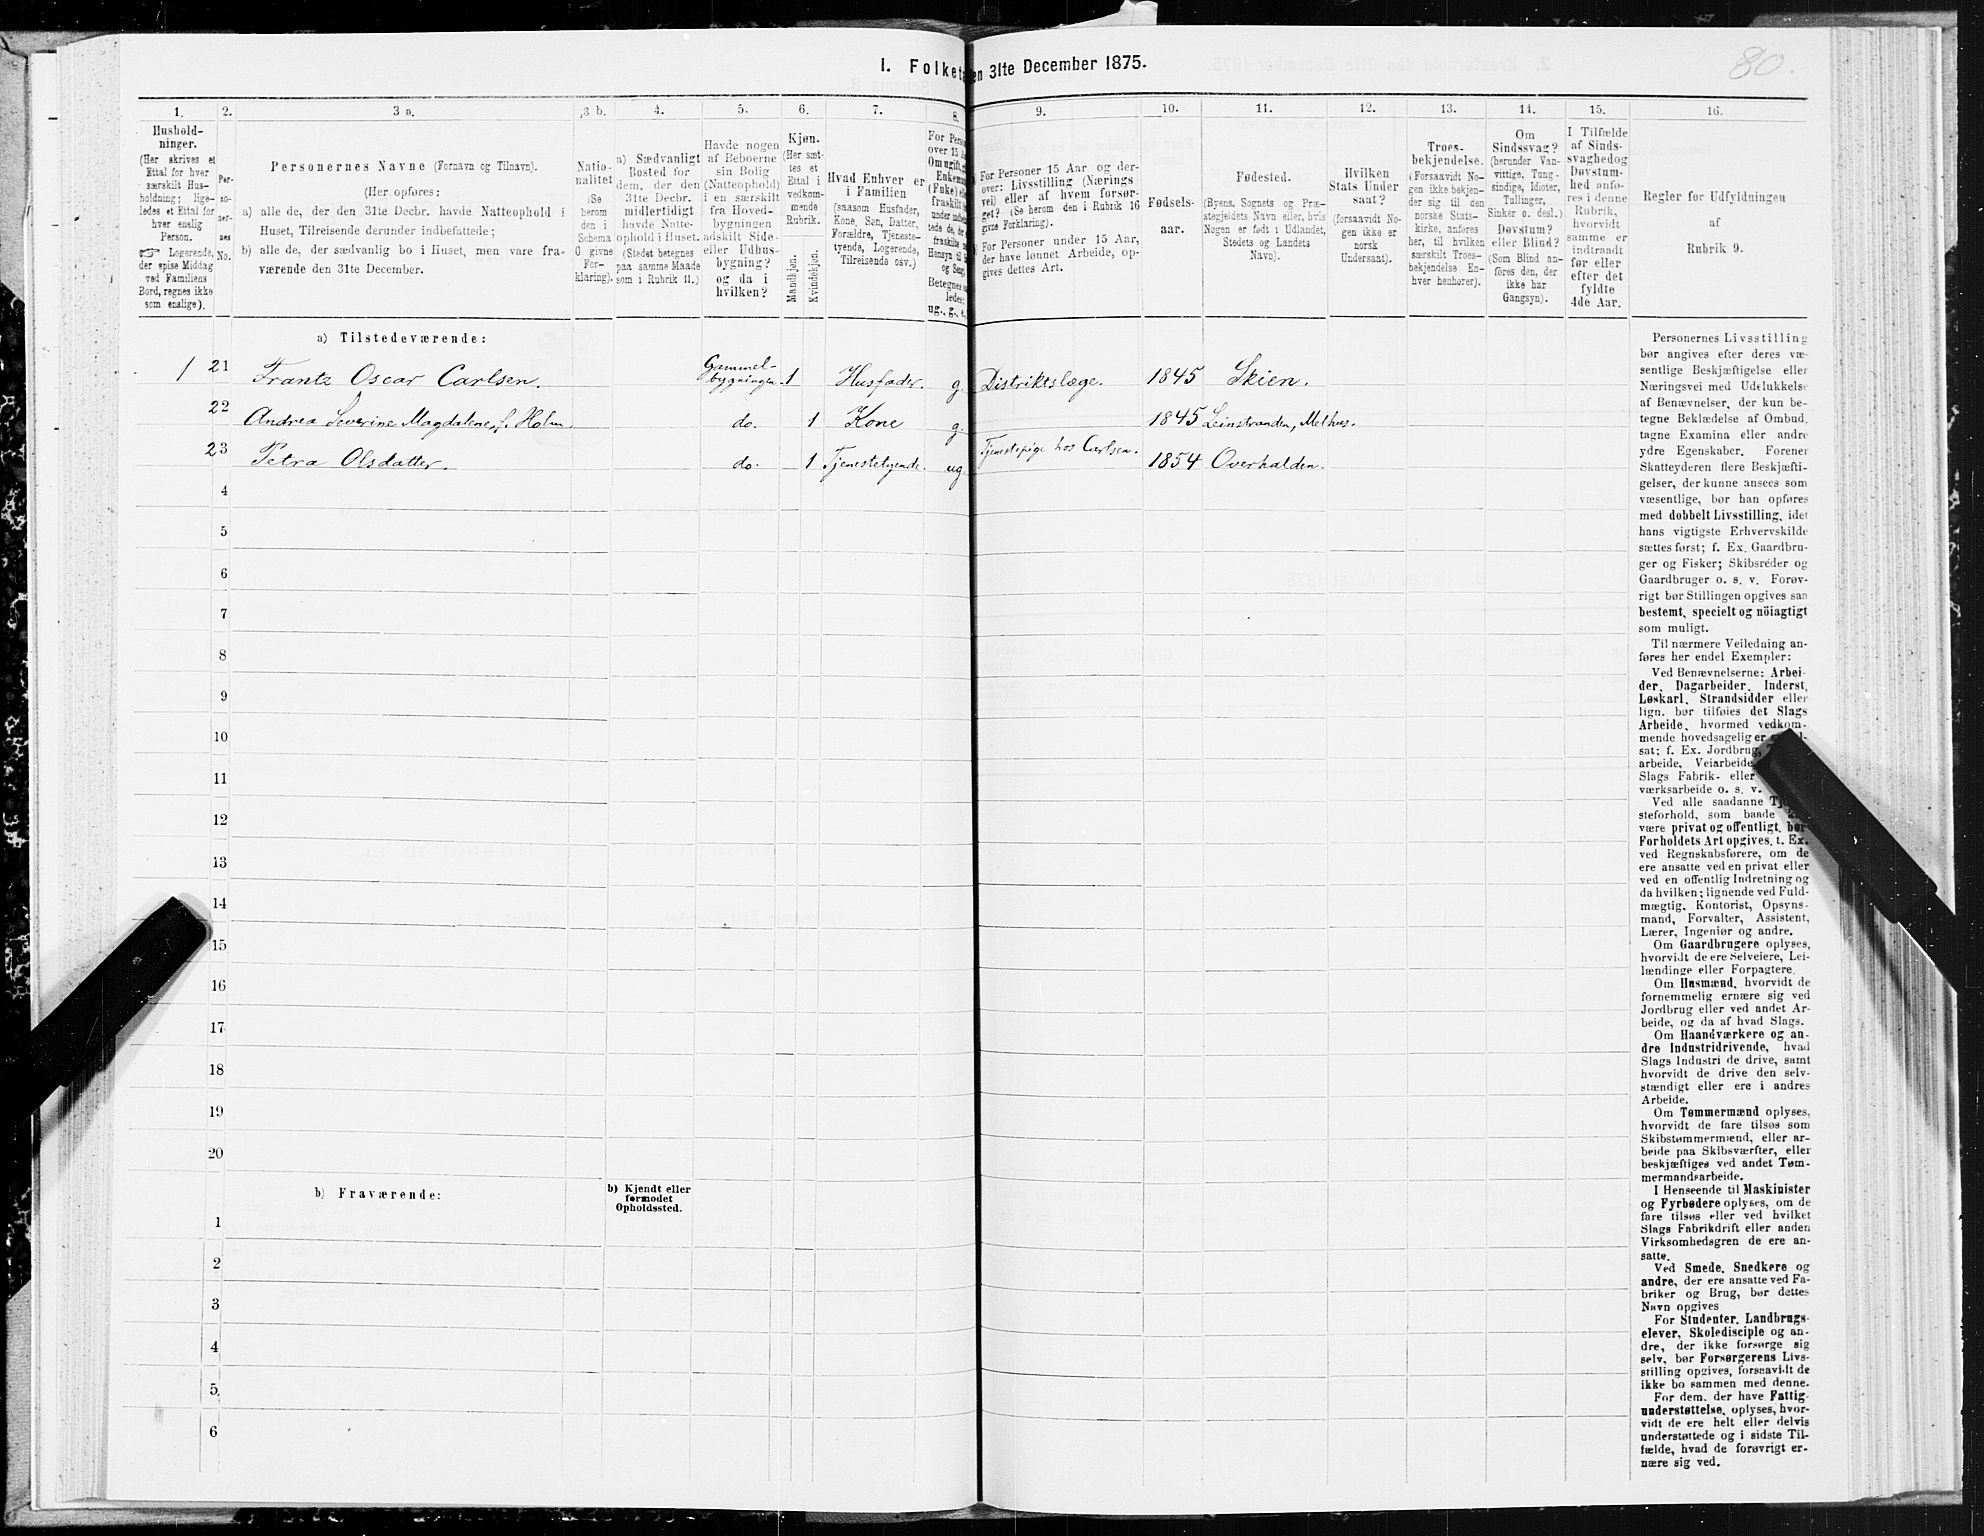 80.
1. Folketæ en 31te December 1875.
1. 2. 3 a. 3 b. 4. 5. 6. 7. 8. 9. 10. 11. 12. 13. 14. 15. 16.
Hushold-
ninger.
(Her skrives et
Ettal for hver
særskilt Hus-
holdning; lige-
ledes et Ettal for
hver enslig
Person.
☞ Logerende,
der spise Middag
ved Familiens
Bord, regnes ikke
som enslige).
Per-
so-
ner-
nes
No.
Personernes Navne (Fornavn og Tilnavn).
(Her opføres:
a) alle de, der den 31te Decbr. havde Natteophold i
Huset, Tilreisende derunder indbefattede;
b) alle de, der sædvanlig bo i Huset, men vare fra-
værende den 31te December.
Natio-
nalitet
(Se
herom
den i
Schema
0 givne
For-
klaring).
a) Sædvanligt
Bosted for
dem, der den
31te Decbr.
midlertidigt
havde Natte-
ophold i Huset.
(Stedet betegnes
paa samme Maade
som i Rubrik 11.)
Havde nogen
af Beboerne
sin Bolig
(Natteophold)
i en særskilt
fra Hoved-
bygningen
adskilt Side-
eller Udhus-
bygning?
og da i
hvilken?
Kjøn.
(Her sæt-
tes et
Ettal i
vedkom-
mende
Rubrik.
Mandkjøn.
Kvindekjøn.
Hvad Enhver er
i Familien
(saasom Husfader,
Kone, Søn, Datter,
Forældre, Tjeneste-
tyende, Logerende,
Tilreisende osv.)
For Pers
over 15 A
Om ugift, g
Enkem
(Enke) el
fraskilt
Betegnes
ledes:
ug., g., e.,
For Personer 15 Aar og der-
over: Livsstilling (Nærings
vei) eller af hvem forsør-
get? (Se herom den i Rubrik 16
givne Forklaring).
For Personer under 15 Aar,
der have lønnet Arbeide, op-
gives dettes Art.
Fødsels-
aar.
Fødested.
(Byens, Sognets og Præ-
stegjeldets Navn eller, hvis
Nogen er født i Udlandet,
Stedets og Landets
Navn).
Hvilken
Stats Under
saat?
(forsaavidt No-
gen ikke er
norsk
Undersaat).
Troes-
bekjendelse.
(Forsaavidt No-
gen ikke bekjen-
der sig til den
norske Stats-
kirke, anføres
her, til hvilken
særskilt Troes-
bekjendelse En-
hver henhører).
Om
Sindssvag?
(herunder Van-
vittige, Tung-
sindige, Idioter,
Tullinger,
Sinker o. desl.)
Døvstum?
eller Blind?
(Som Blind an-
føres den, der
ikke har
Gangsyn).
I Tilfælde
af Sinds-
svaghedog
Døvstum-
hed anfø-
res i denne
Rubrik,
hvorvidt
samme er
indtraadt
før eller
efter det
fyldte
4de Aar.
Regler for Udfyldningen
af
Rubrik 9.
a) Tilstedeværende:
1 21 Frantz Oscar Carlsen. Gammel-bygningen. 1 Husfader. g. Distriktslæge. 1845 Skien.
22 Andrea Severine Magdalene, f. Holm. do. 1 Kone g. 1845 Leinstranden, Melhus.
23 Petra Olsdatter. do. 1 Tjenestetyende. ug. Tjenestepige hos Carlsen. 1854 Overhalden.
4
5
6
7
8
9
10
11
12
13
14
15
16
17
18
19
20
b) Fraværende: b) Kjendt eller
formodet
Opholdssted.
1
2
3
4
5
6
Personernes Livsstilling
bør angives efter deres væ-
sentlige Beskjæftigelse eller
Næringsvei med Udelukkelse
af Benævnelser, der kun be-
tegne Beklædelse af Ombud,
tagne Examina eller andre
ydre Egenskaber. Forener
Skatteyderen flere Beskjæfti-
gelser, der kunne ansees som
væsentlige, bør han opføres
med dobbelt Livsstilling, idet
hans vigtigste Erhvervskilde
sættes først; f. Ex. Gaardbru-
ger og Fisker; Skibsreder og
Gaardbruger o. s. v. Forøv-
rigt bør Stillingen opgives saa
bestemt, specielt og nöiagtigt
som muligt.
Til nærmere Veiledning an-
føres her endel Exempler:
Ved Benævnelserne: Arbei-
der, Dagarbeider, Inderst,
Løskarl, Strandsidder eller
lign. bør tilføies det Slags
Arbeide, hvormed vedkom-
mende hovedsagelig er
sat; f. Ex. Jordbrug,
arbeide, Veiarbeide,
Slags Fabrik- eller
værksarbeide o. s. v.
Ved alle saadanne
steforhold, som baade
være privat og offentligt, bør
Forholdets Art opgives, t. Ex.
ved Regnskabsførere, om de
ere ansatte ved en privat eller
ved en offentlig Indretning og
da hvilken; lignende ved Fuld-
mægtig, Kontorist, Opsyns-
mand, Forvalter, Assistent,
Lærer, Ingeniør og andre.
Om Gaardbrugere oplyses,
hvorvidt de ere Selveiere, Lei-
lændinge eller Forpagtere.
Om Husmænd, hvorvidt de
fornemmelig ernære sig ved
Jordbrug eller ved andet Ar-
beide, og da af hvad Slags.
Om Haandværkere og an-
dre Industridrivende, hvad
Slags Industri de drive, samt
hvorvidt de drive den selv-
stændigt eller ere i andres
Arbeide.
Om Tømmermænd oplyses,
hvorvidt de fare tilsøs som
Skibstømmermænd, eller ar-
beide paa Skibsværfter, eller
beskjæftiges ved andet Tøm-
mermandsarbeide.
I Henseende til Maskinister
og Fyrbødere oplyses, om de
fare tilsøs eller ved hvilket
Slags Fabrikdrift eller anden
Virksomhedsgren de ere an-
satte.
Ved Smede, Snedkere og
andre, der ere ansatte ved Fa-
briker og Brug, bør dettes
Navn opgives
For Studenter, Landbrugs-
elever, Skoledisciple og an-
dre, der ikke forsørge sig
selv, bør Forsørgerens Livs-
stilling opgives, forsaavidt de
ikke bo sammen med denne.
For dem, der have Fattig-
understøttelse, oplyses, hvor-
vidt de ere helt eller delvis
understøttede og i sidste Til-
fælde, hvad de forøvrigt er-
nære sig ved.